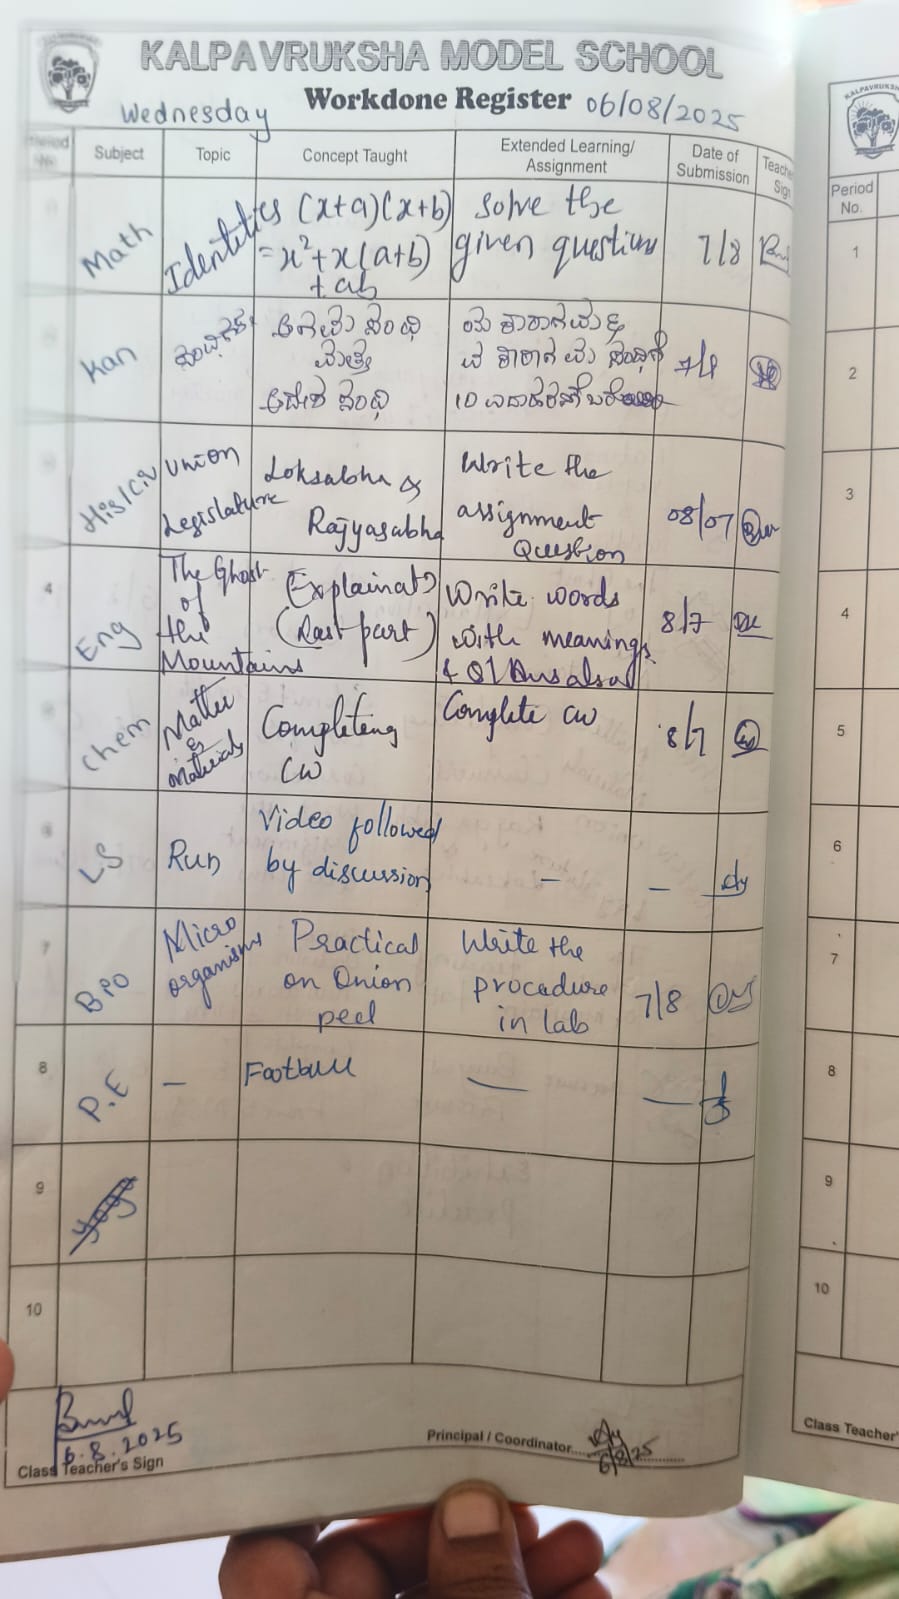 KALPAVRUKSHA MODEL SCHOOL
Workdone Register
Wednesday
06/08/2025
Period No.
Subject
Topic
Concept Taught
Extended Learning/
Assignment
Date of
Submission
Teacher
Sign
Math
Identities
(x+a)(x+b)
= x²+x(a+b)
+ ab
Solve the
given questions
7/8
Kan
ಆಗಮ ಸಂಧಿ
ಮತ್ತು
ಆದೇಶ ಸಂಧಿ
10 ಉದಾಹರಣೆ
7/8
His/Civ
Union
Legislature
Loksabha &
Rajyasabha
Write the
assignment
Question
08/07
4
Eng
The Ghost
of
the
Mountains
(Last part)
Write words
with meanings
& Q/Ans also
8/7
Chem
Matter
&
Materials
Completing
CW
Complete CW
8/7
6
LS
Run
Video followed
by discussion
—
—
7
BPO
Micro
organisms
Practical
on Onion
peel
Write the
procedure
in lab
7/8
8
P.E
—
Football
—
—
9
10
6.8.2025
Class Teacher's Sign
Principal / Coordinator
6/8/25
Period
No.
1
2
3
4
5
6
7
8
9
10
Class Teacher's